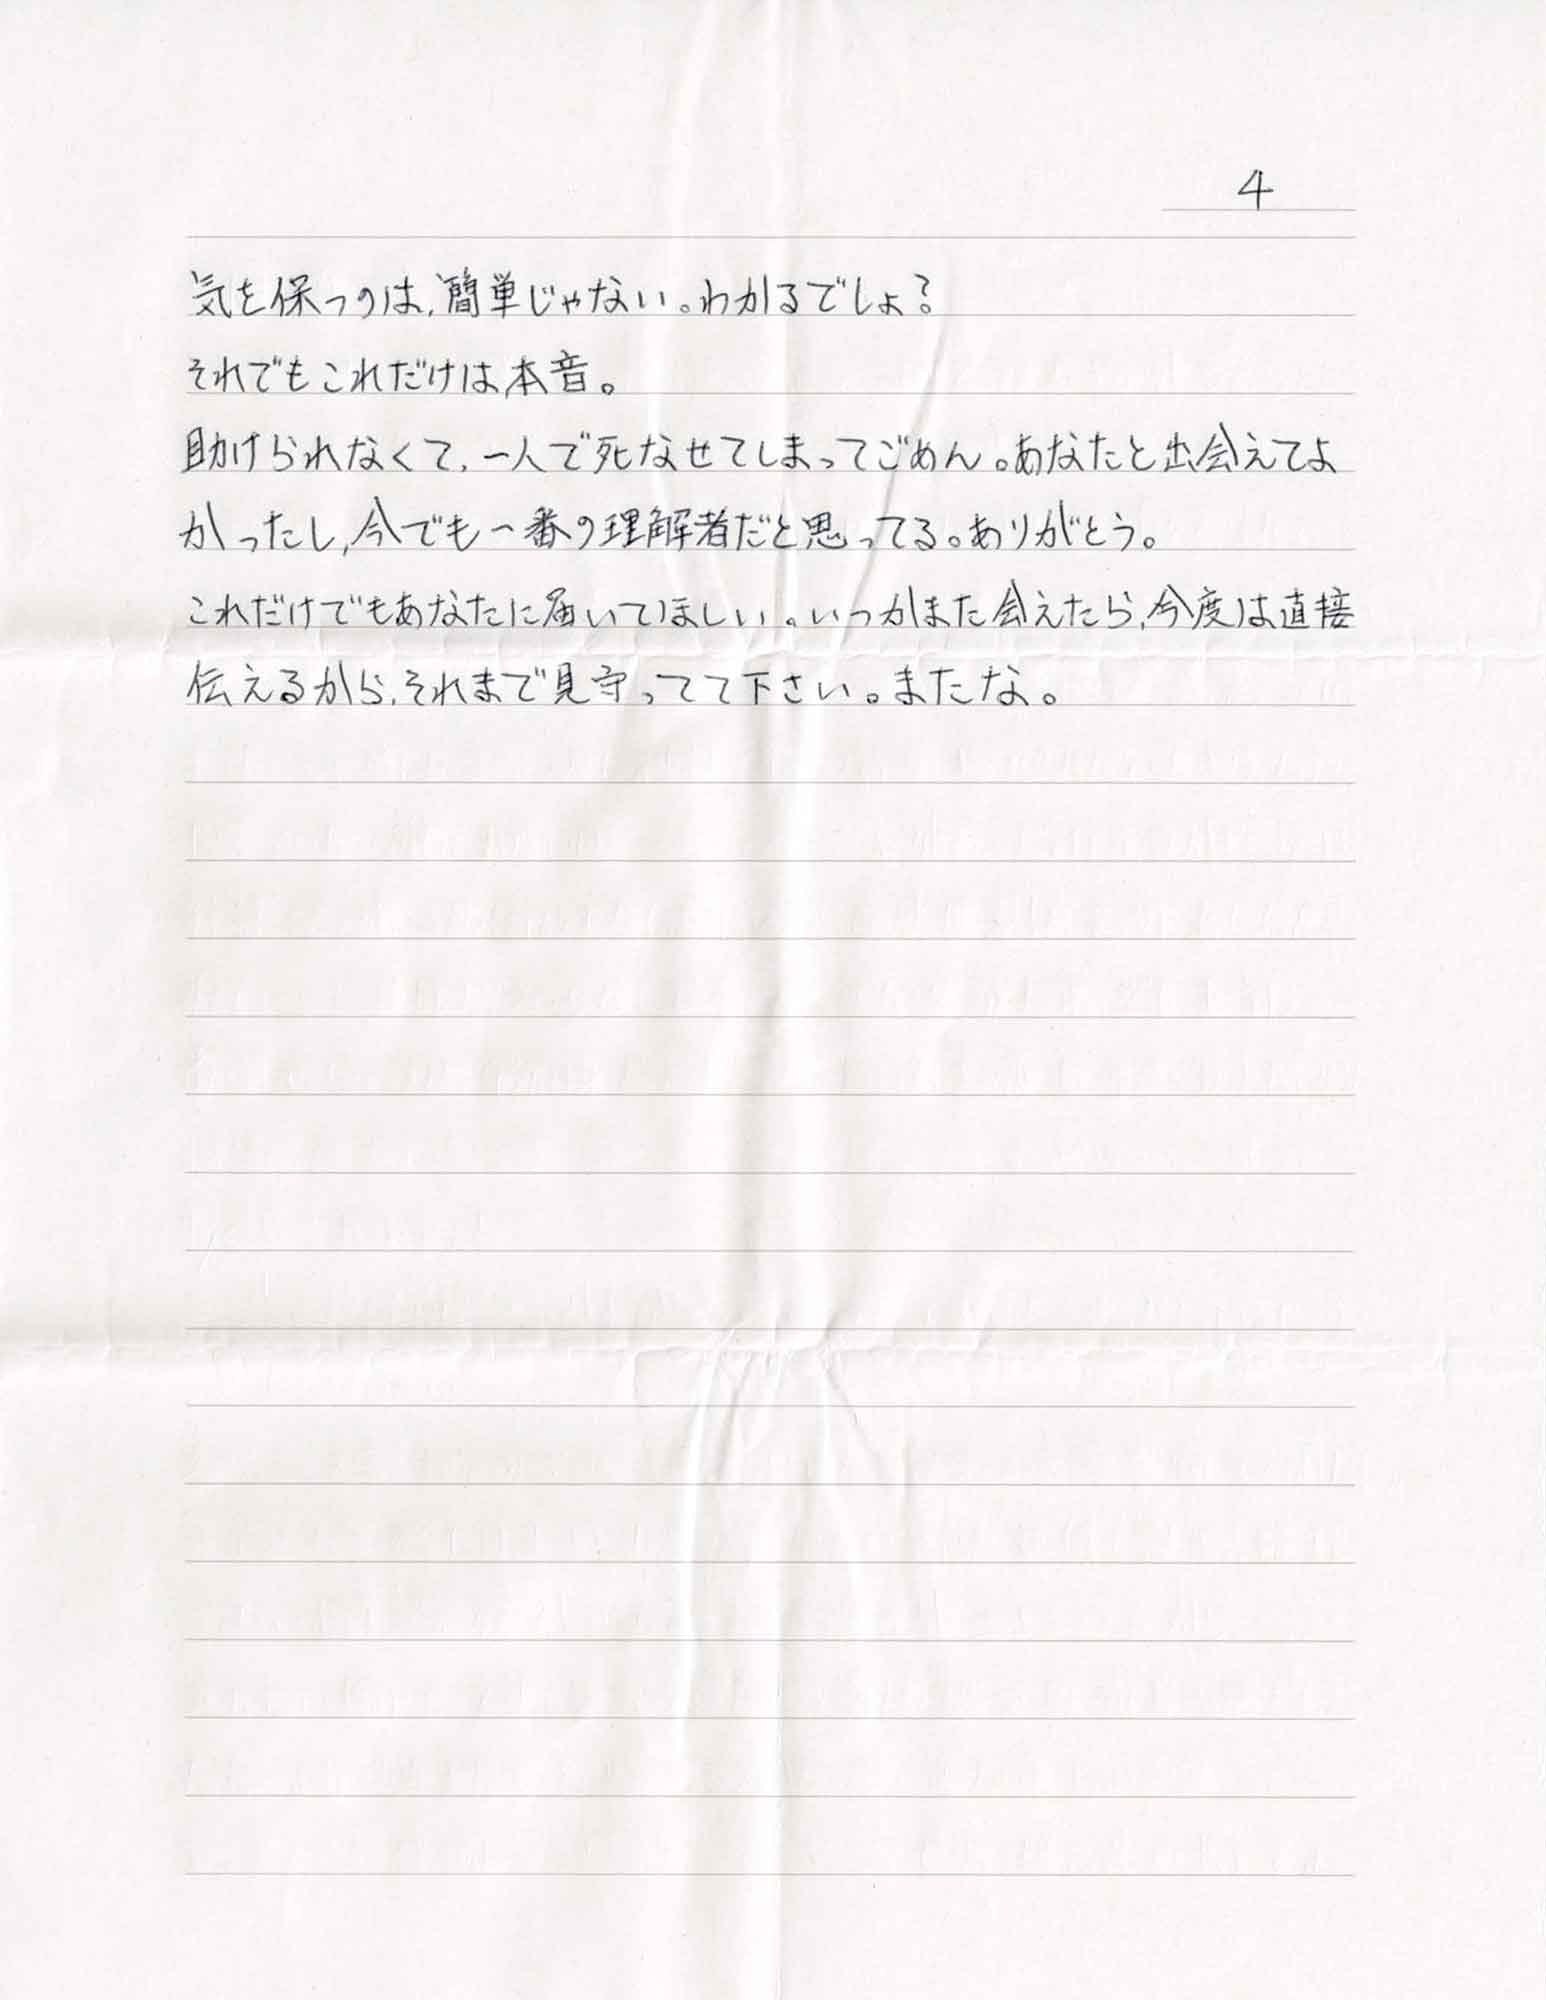 4
気を保つのは、簡単じゃない。わかるでしょ?
それでもこれだけは、本音。
助けられなくて、一人で死なせてしまってごめん。あなたと出会えてよ
かったし、今でも一番の理解者だと思ってる。ありがとう。
これだけでもあなたに届いてほしい。いつかまた会えたら、今度は直接
伝えるから、それまで見守ってて下さい。またな。